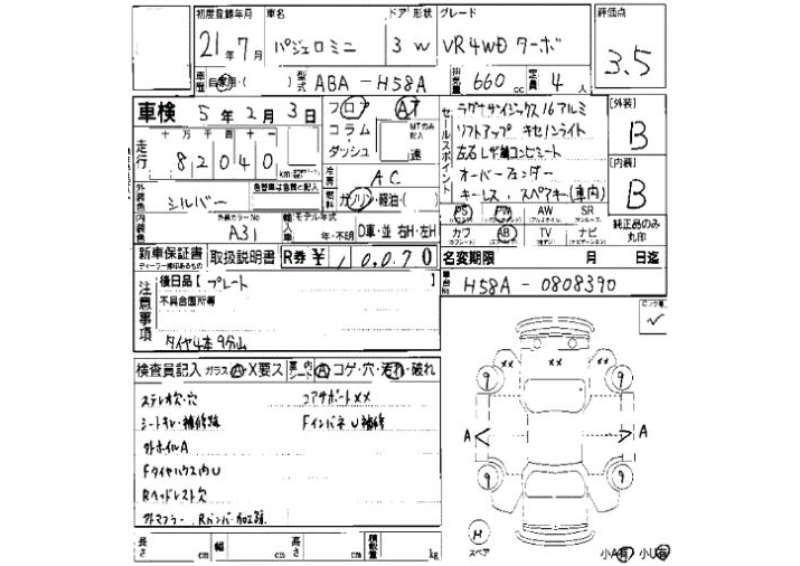 初度登録年月 車名 ドア 形状 グレード 評価点
21年7月 パジェロミニ 3 W VR4WD ターボ 3.5
車歴 自家用・( ) 型式 ABA-H58A 排気量 660cc 定員 4人
車検 5年2月3日 フロア AT
コラム MTのみ記入
ダッシュ 速
走行 十万千百十一
82040 km
冷房 AC
外装色 シルバー 色替車は色替と記入
燃料 ガソリン・軽油・( )
内装色 外装カラーNo A31
輸入車 モデル年式 年・不明 D車・並 右H・左H
セールスポイント
ラグナサンイジックス16アルミ
リフトアップ キセノンライト
左右レザ調コンビシート
オーバーフェンダー
キーレス、スペアキー(車内)
[外装] B
[内装] B
PS PW AW SR
カワ AB TV ナビ
純正品のみ丸印
新車保証書 取扱説明書 R券¥ 10,070
名変期限 月 日迄
注意事項
後日品[プレート]
不具合箇所等
タイヤ4本9分山
車台No H58A-0808390
検査員記入 ガラスA・X要ス 内シート A コゲ・穴・汚れ・破れ
ステレオ欠・穴 コアサポートXX
シートキレ・補修跡 Fインパネ U補修
外ホイルA
Fタイヤハウス内U
Rヘッドレスト欠
外マフラー、Rバンパー加工跡
長さ cm 幅 cm 高さ cm 積載量 kg
xx xx xx
9 9
A A
9 9
H
スペア
小A有 小U有